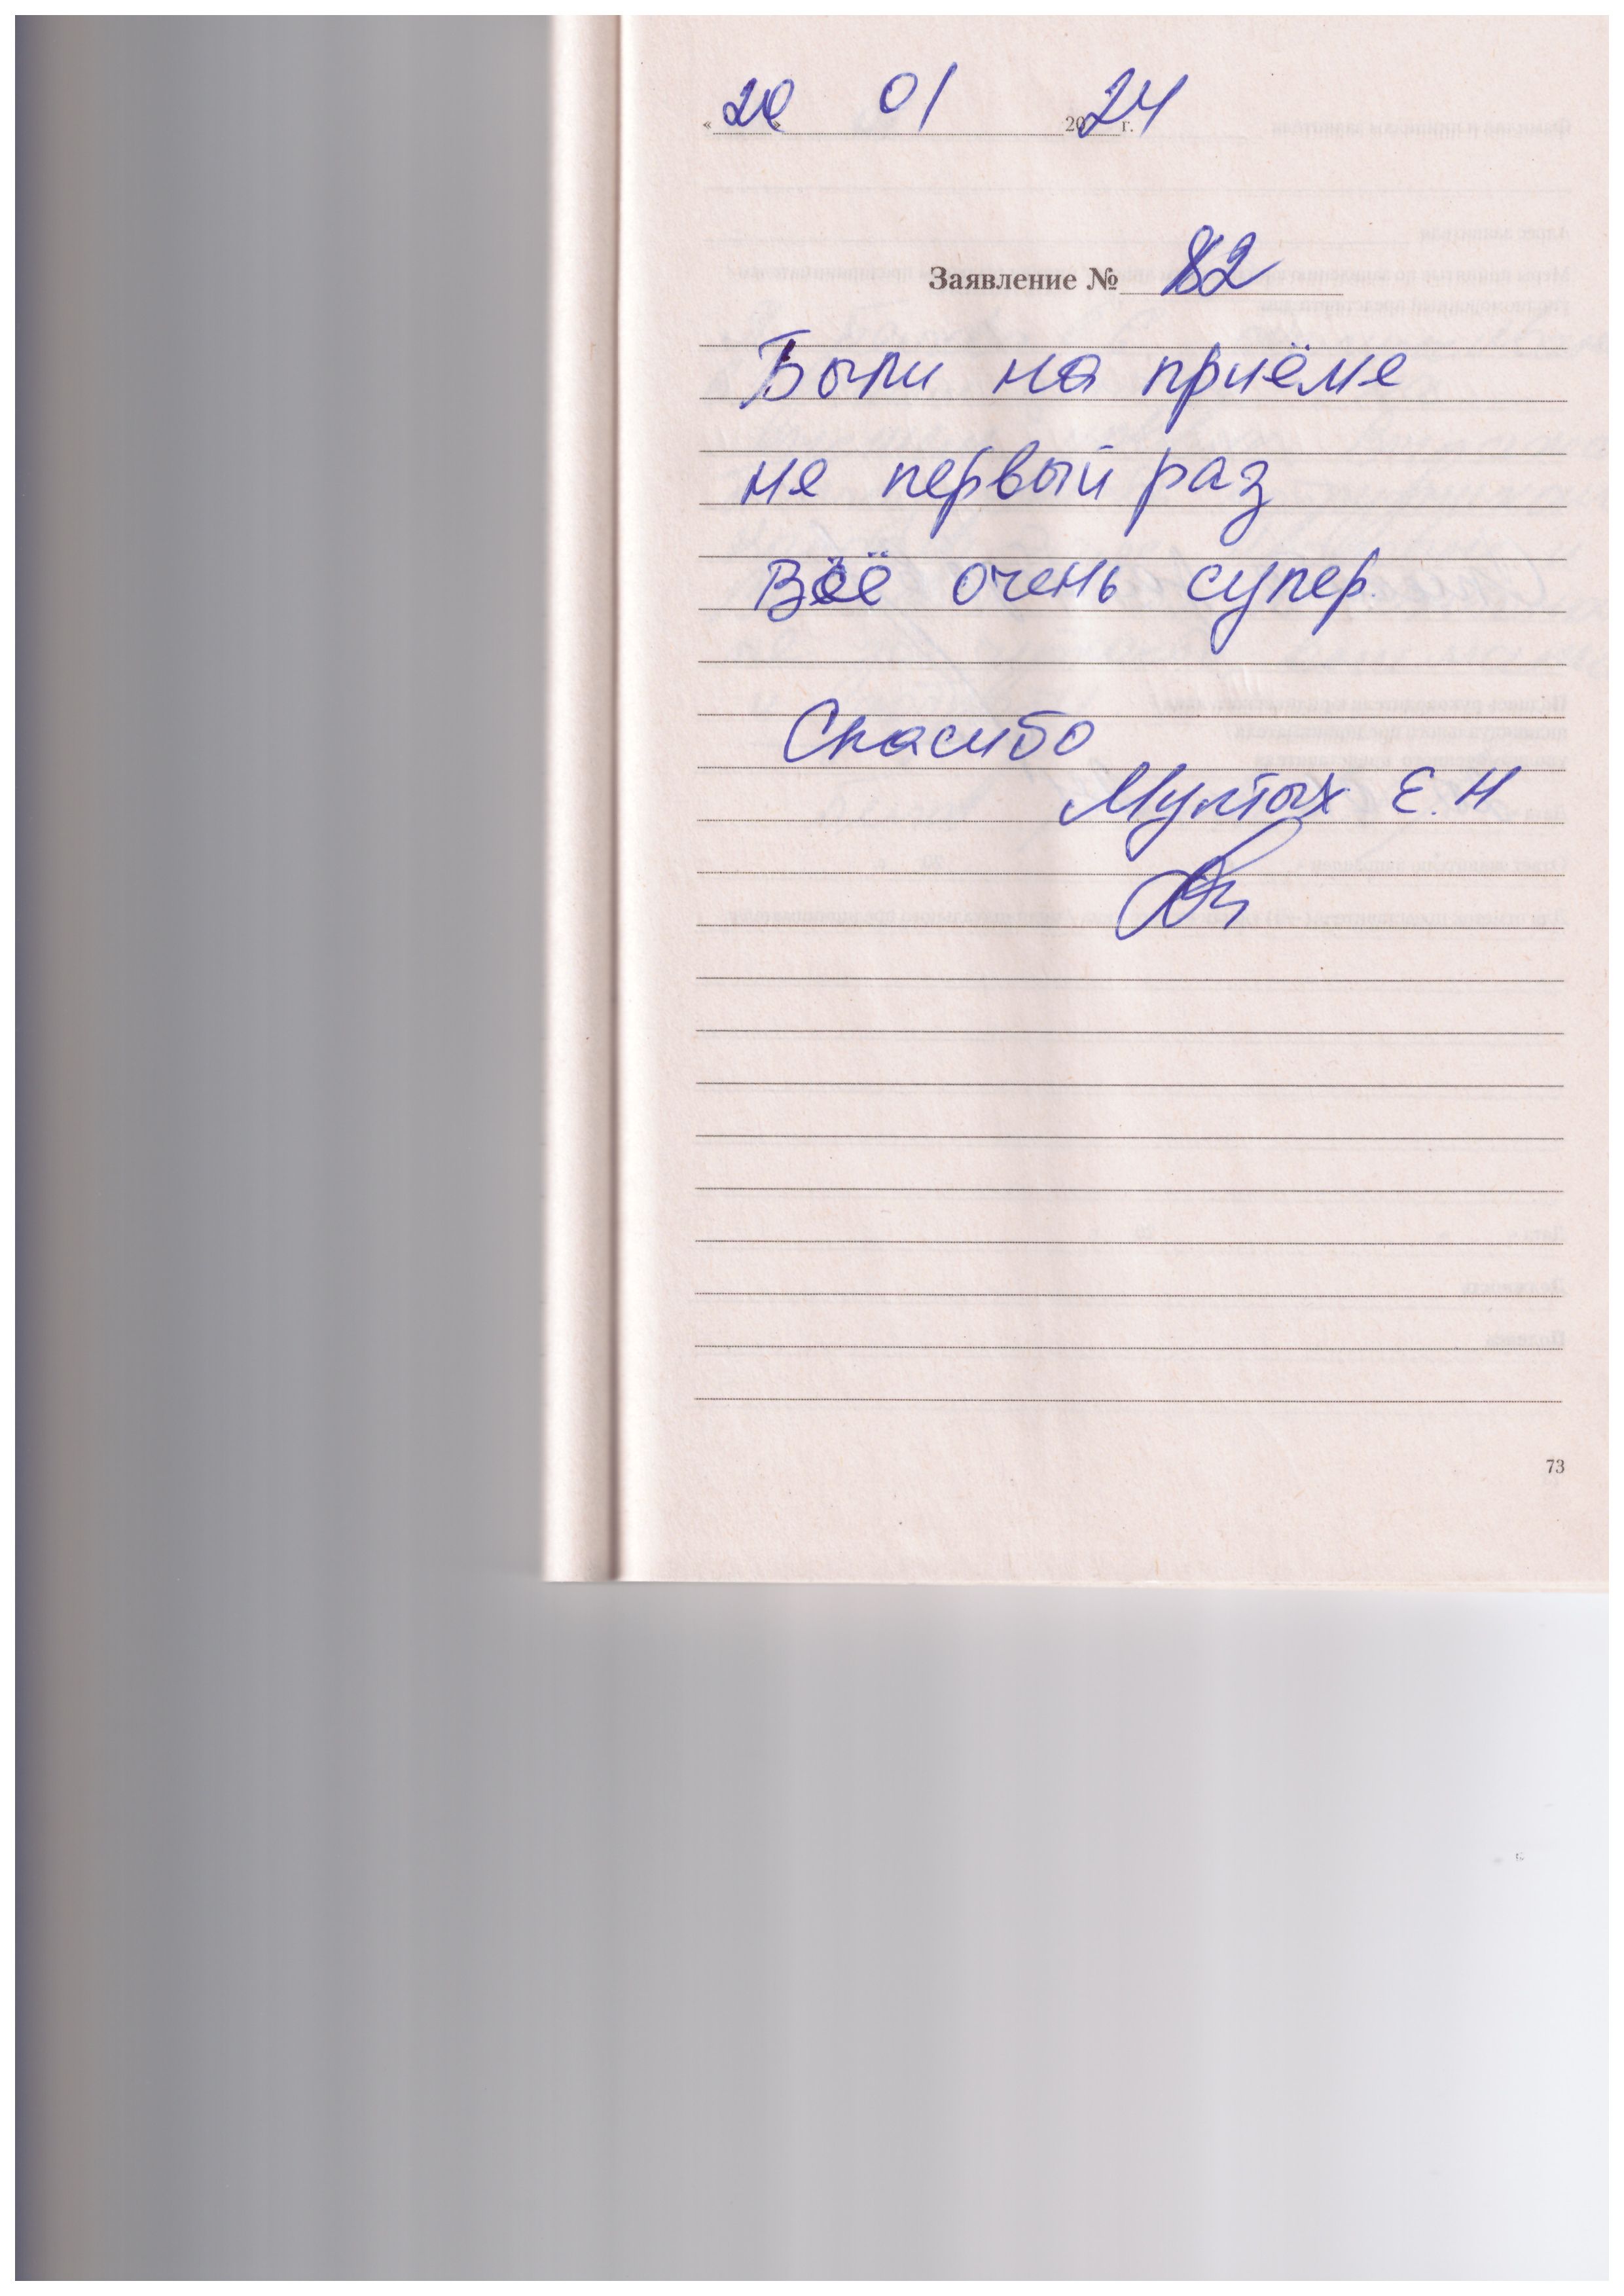 «20» 01 2024 г.
Заявление № 82
Были на приёме
не первый раз
Всё очень супер.
Спасибо
Е.Н
73